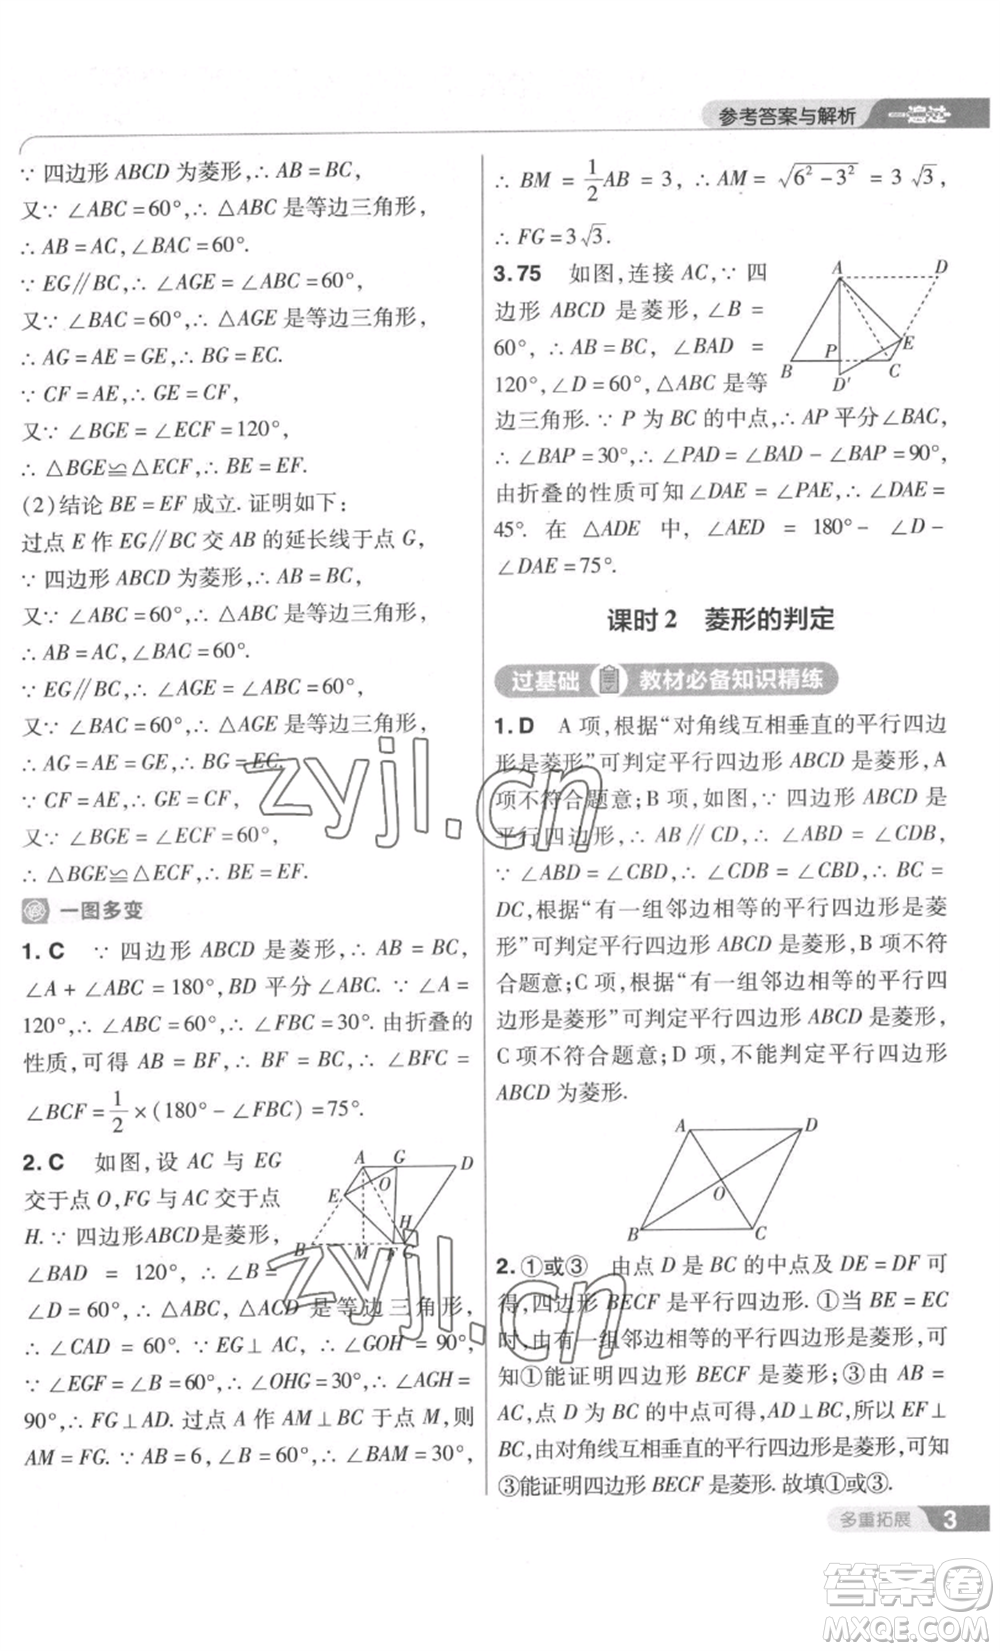 参考答案与解析 一遍过
∵ 四边形 ABCD 为菱形,∴ AB = BC,
又∵ ∠ABC = 60°,∴ △ABC 是等边三角形,
∴ AB = AC,∠BAC = 60°.
∵ EG∥BC,∴ ∠AGE = ∠ABC = 60°,
又∵ ∠BAC = 60°,∴ △AGE 是等边三角形,
∴ AG = AE = GE,∴ BG = EC.
∵ CF = AE,∴ GE = CF,
又∵ ∠BGE = ∠ECF = 120°,
∴ △BGE≌△ECF,∴ BE = EF.
(2)结论 BE = EF 成立. 证明如下:
过点 E 作 EG∥BC 交 AB 的延长线于点 G,
∵ 四边形 ABCD 为菱形,∴ AB = BC,
又∵ ∠ABC = 60°,∴ △ABC 是等边三角形,
∴ AB = AC,∠BAC = 60°.
∵ EG∥BC,∴ ∠AGE = ∠ABC = 60°,
又∵ ∠BAC = 60°,∴ △AGE 是等边三角形,
∴ AG = AE = GE,∴ BG = EC.
∵ CF = AE,∴ GE = CF,
又∵ ∠BGE = ∠ECF = 60°,
∴ △BGE≌△ECF,∴ BE = EF.
一图多变
1. C ∵ 四边形 ABCD 是菱形,∴ AB = BC,
∠A + ∠ABC = 180°,BD 平分∠ABC. ∵ ∠A =
120°,∴ ∠ABC = 60°,∴ ∠FBC = 30°. 由折叠的
性质,可得 AB = BF,∴ BF = BC,∴ ∠BFC =
∠BCF = 1/2 × (180° - ∠FBC) = 75°.
2. C 如图,设 AC 与 EG
交于点 O,FG 与 AC 交于点
H. ∵ 四边形ABCD是菱形,
∠BAD = 120°,∴ ∠B =
∠D = 60°,∴ △ABC, △ACD 是等边三角形,
∴ ∠CAD = 60°. ∵ EG⊥AC,∴ ∠GOH = 90°,
∵ ∠EGF = ∠B = 60°,∴ ∠OHG = 30°,∴ ∠AGH =
90°,∴ FG⊥AD. 过点 A 作 AM⊥BC 于点 M,则
AM = FG. ∵ AB = 6, ∠B = 60°,∴ ∠BAM = 30°,
A G D
E O
H
B M F C
∴ BM = 1/2 AB = 3, ∴ AM = √(6² - 3²) = 3√3,
∴ FG = 3√3.
3. 75 如图,连接 AC,∵ 四
边形 ABCD 是菱形,∠B =
60°,∴ AB = BC, ∠BAD =
120°,∠D = 60°,△ABC 是等
边三角形. ∵ P 为 BC 的中点,∴ AP 平分∠BAC,
∴ ∠BAP = 30°,∴ ∠DAP = ∠BAD - ∠BAP = 90°,
由折叠的性质可知 ∠DAE = ∠PAE,∴ ∠DAE =
45°. 在 △ADE 中, ∠AED = 180° - ∠D -
∠DAE = 75°.
A D
P E
B D' C
课时 2 菱形的判定
过基础 教材必备知识精练
1. D A 项,根据“对角线互相垂直的平行四边
形是菱形”可判定平行四边形 ABCD 是菱形,A
项不符合题意;B 项,如图,∵ 四边形 ABCD 是
平行四边形,∴ AB∥CD,∴ ∠ABD = ∠CDB,
∵ ∠ABD = ∠CBD,∴ ∠CBD = ∠CDB,∴ BC =
DC,根据“有一组邻边相等的平行四边形是菱
形”可判定平行四边形 ABCD 是菱形,B 项不符
合题意;C 项,根据“有一组邻边相等的平行四
边形是菱形”可判定平行四边形 ABCD 是菱形,
C 项不符合题意;D 项,不能判定平行四边形
ABCD 为菱形.
A D
O
B C
2. ①或③ 由点 D 是 BC 的中点及 DE = DF 可
得,四边形 BECF 是平行四边形. ①当 BE = EC
时,由有一组邻边相等的平行四边形是菱形,可
知①能证明四边形 BECF 是菱形;③由 AB =
AC,点 D 为 BC 的中点可得,AD⊥BC,所以 EF⊥
BC,由对角线互相垂直的平行四边形是菱形,可知
③能证明四边形 BECF 是菱形. 故填①或③.
多重拓展 3
zyjl.cn
zyjl.cn
答案圈
MXQE.COM